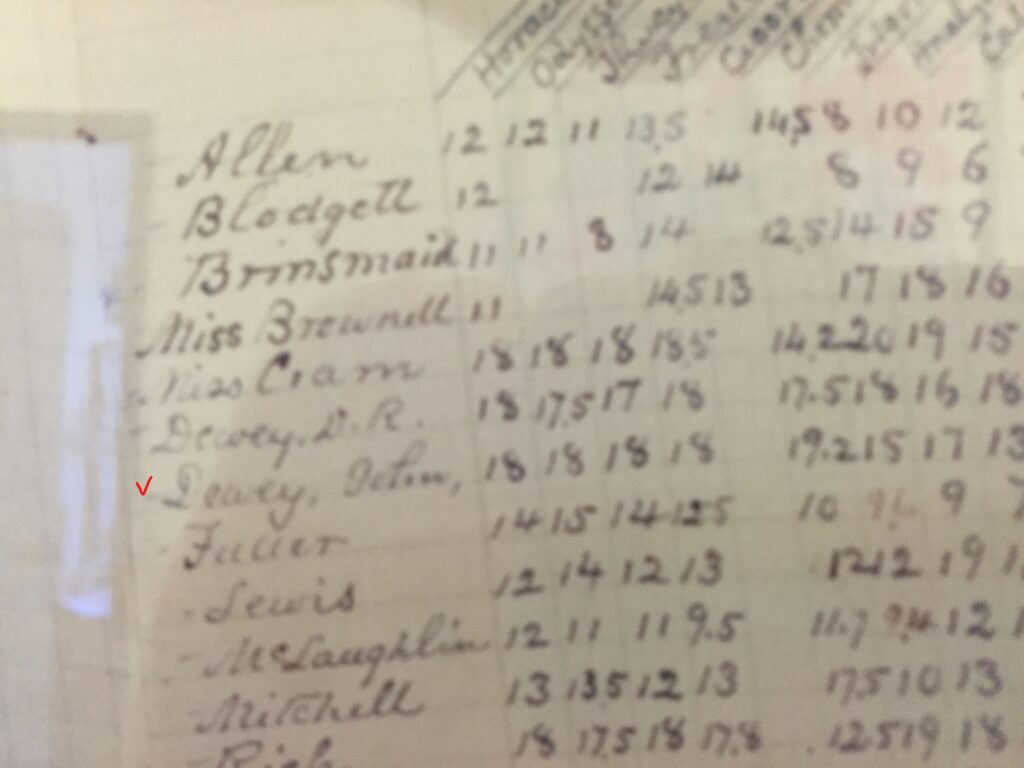 Horace
Allen 12 12 11 13.5 14.5 8 10 12
Blodgett 12 12 14 8 9 6
Brinsmaid 11 11 8 14 12.5 14 15 9
Miss Brownell 11 14.5 13 17 18 16
Miss Cram 18 18 18 18.5 14.2 20 19 15
Dewey. D. R. 18 17.5 17 18 17.5 18 16 18
Dewey, John, 18 18 18 18 19.2 15 17 13
Fuller 14 15 14 12.5 10 9
Lewis 12 14 12 13 12 12 19
McLaughlin 12 11 11 9.5 11.7 9.4 12
Mitchell 13 13.5 12 13 17.5 10 13
18 17.5 18 17.8 12.5 19 18